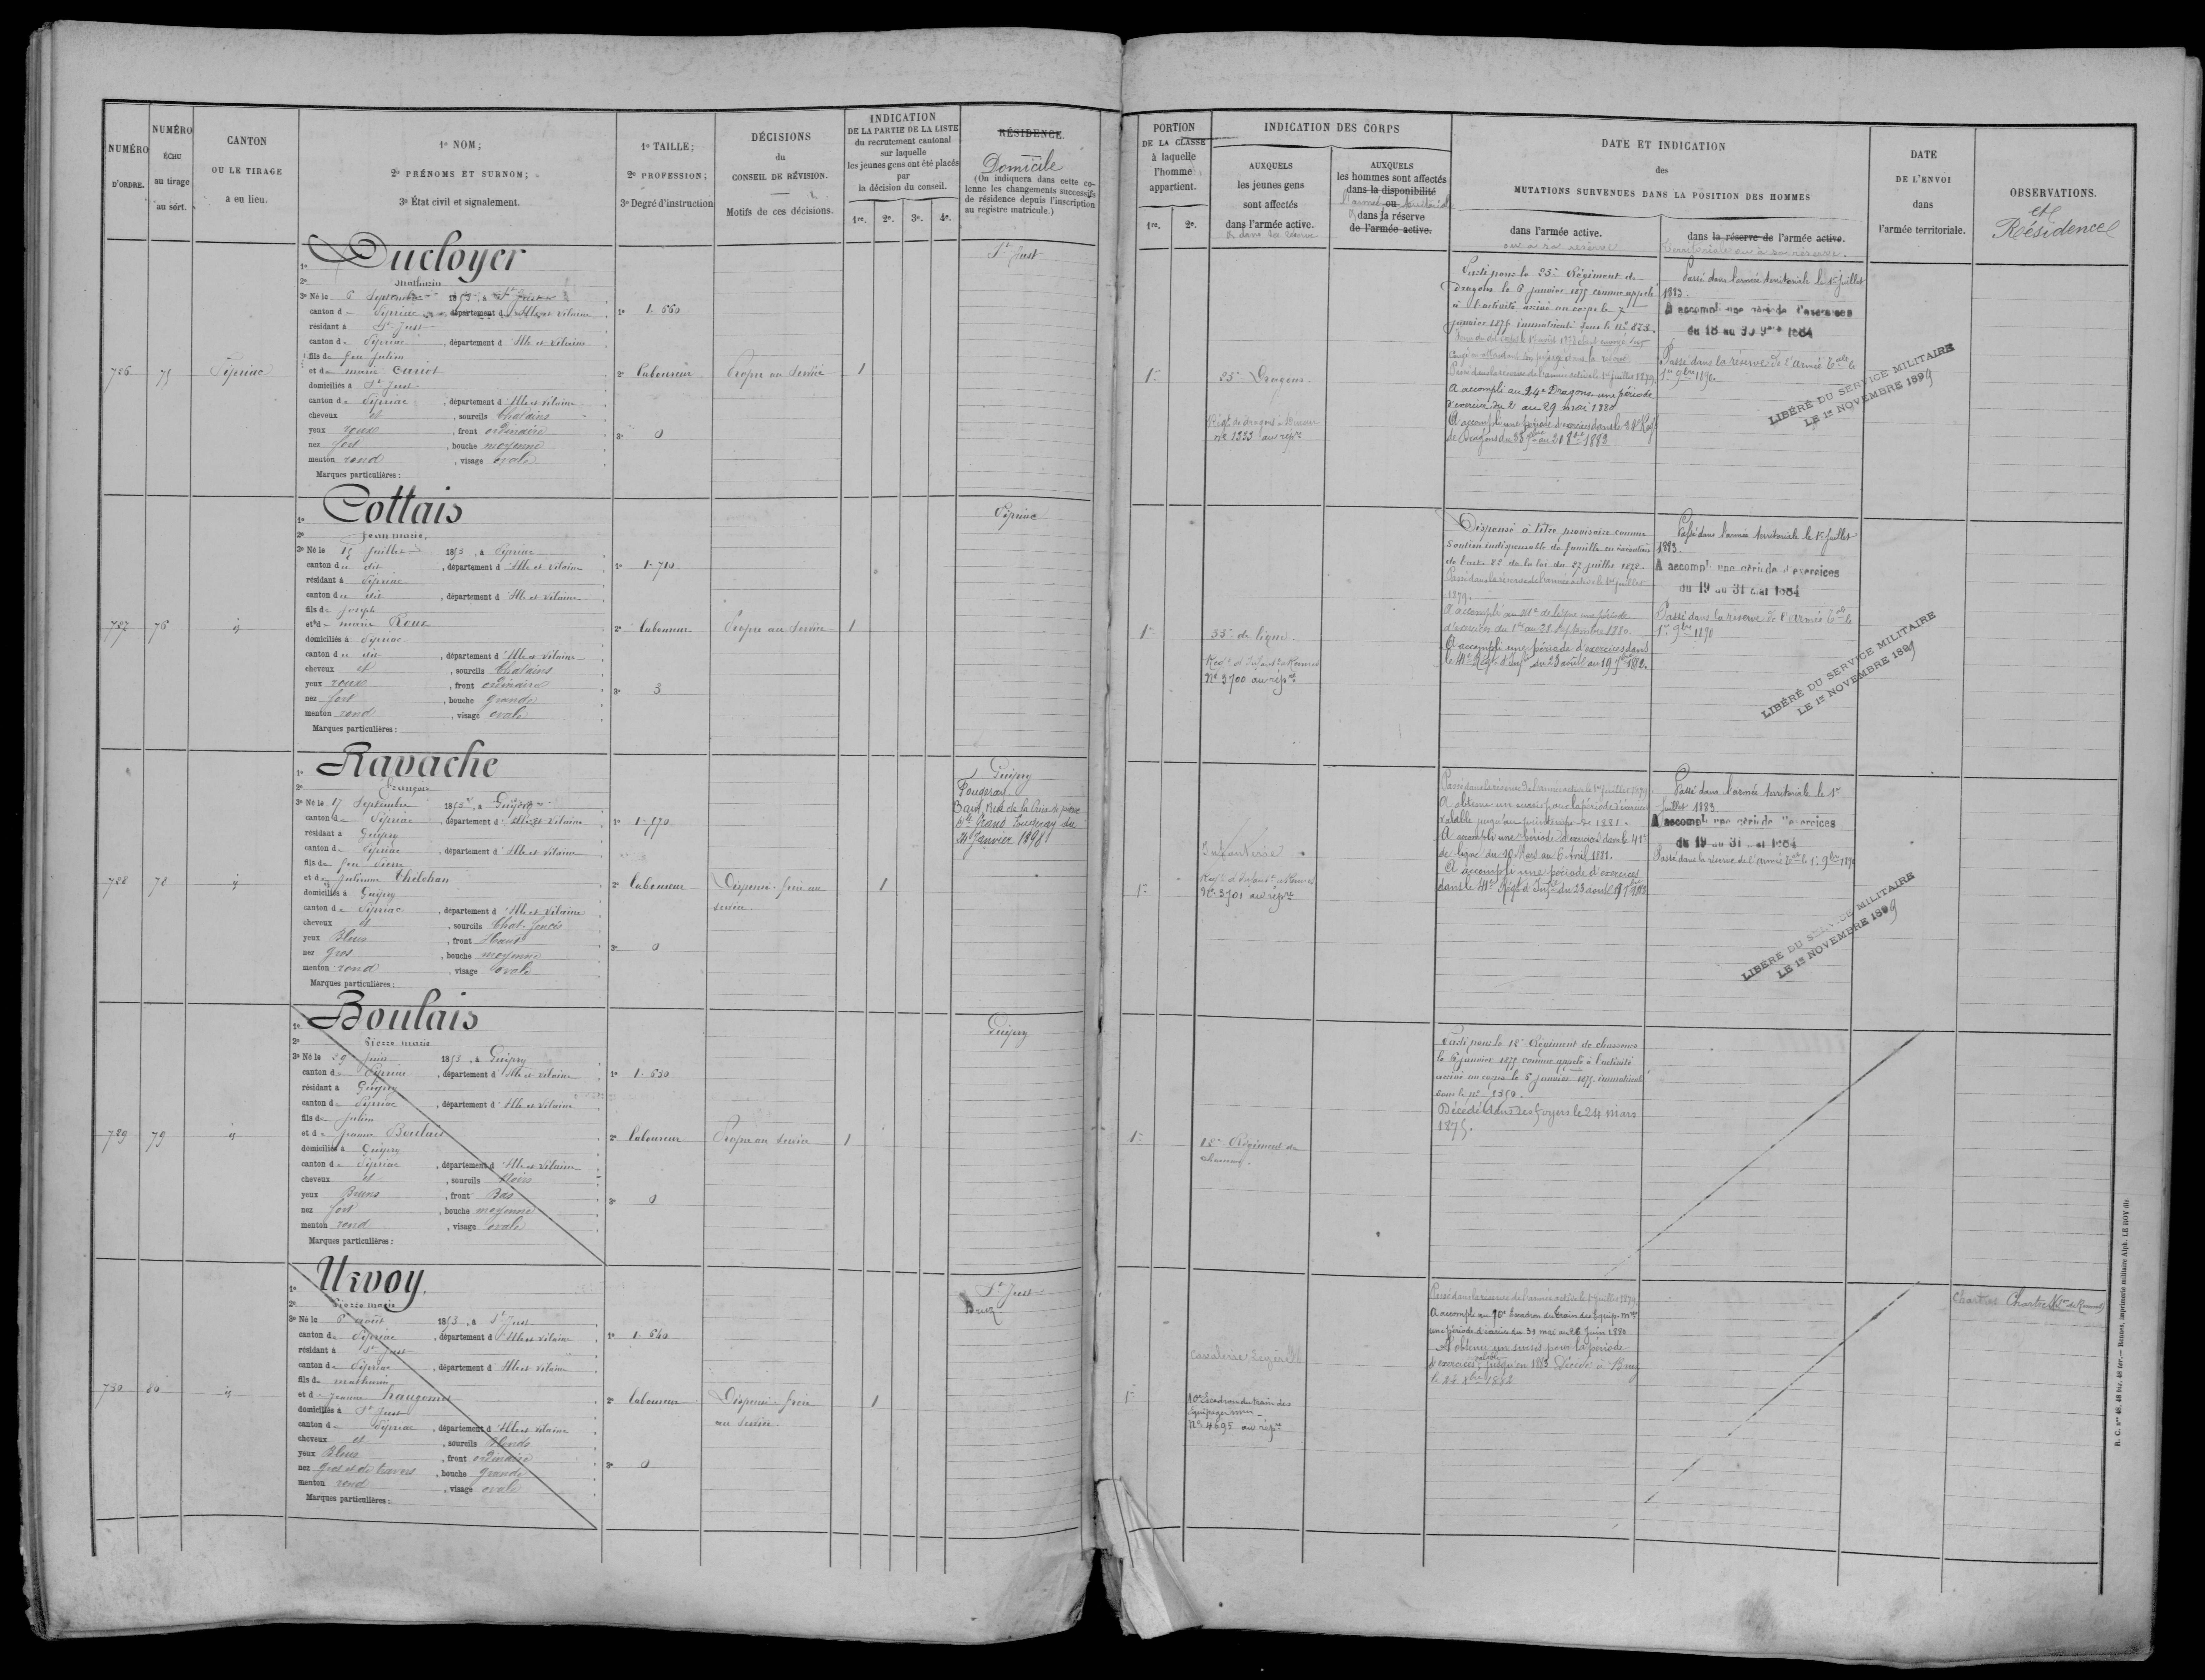 NUMÉRO
D'ORDRE.
NUMÉRO
ÉCHU
au tirage
au sort.
CANTON
OU LE TIRAGE
a eu lieu.
1º NOM;
2º PRÉNOMS ET SURNOM;
3º État civil et signalement.
1º TAILLE;
2º PROFESSION;
3º Degré d'instruction
DÉCISIONS
du
CONSEIL DE RÉVISION.
Motifs de ces décisions.
INDICATION
DE LA PARTIE DE LA LISTE
du recrutement cantonal
sur laquelle
les jeunes gens ont été placés
par
la décision du conseil.
1re. 2e. 3e. 4e.
RÉSIDENCE.
Domicile
(On indiquera dans cette co-
lonne les changements successifs
de résidence depuis l'inscription
au registre matricule.)
PORTION
DE LA CLASSE
à laquelle
l'homme
appartient.
1re. 2e.
INDICATION DES CORPS
AUXQUELS
les jeunes gens
sont affectés
dans l'armée active.
& dans sa réserve
AUXQUELS
les hommes sont affectés
dans la disponibilité
l'armée ou territoriale
& dans la réserve
de l'armée active.
DATE ET INDICATION
des
MUTATIONS SURVENUES DANS LA POSITION DES HOMMES
dans l'armée active.
ou sa réserve
dans la réserve de l'armée active.
territoriale ou à sa réserve.
DATE
DE L'ENVOI
dans
l'armée territoriale.
OBSERVATIONS.
et
Résidence
726
75
Pipriac
1º Ducloyer
2º Mathurin
3º Né le 6 Septembre 1853, à St Just
canton de Pipriac, département d'Ille et Vilaine
résidant à St Just
canton de Pipriac, département d'Ille et Vilaine
fils de feu Julien
et de marie Cariot
domiciliés à St Just
canton de Pipriac, département d'Ille et Vilaine
cheveux et, sourcils Chatains
yeux roux, front ordinaire
nez fort, bouche moyenne
menton rond, visage ovale
Marques particulières:
1º 1.660
2º Laboureur
3º 0
Propre au Service
1
St Just
1re
25e Dragons.
Régt de dragons à Dinan
nº 1333 au rép.re
Parti pour le 25e Régiment de
Dragons le 6 janvier 1875 comme appelé
à l'activité arrivé au corps le 7
janvier 1875 immatriculé sous le nº 873.
congé en attendant son passage dans la réserve
Passé dans la réserve de l'armée active le 1er juillet 1879.
A accompli au 24e Dragons une période
d'exercice du 2 au 29 mai 1880
A accompli une période d'exercices dans le 24e Régt
Passé dans l'armée territoriale le 1er Juillet
1883.
A accompli une période d'exercices
du 18 au 30 9bre 1884
Passé dans la réserve de l'armée t.ale le
1er 9bre 1890.
LIBÉRÉ DU SERVICE MILITAIRE
LE 1er NOVEMBRE 1899
727
76
id
1º Cottais
2º Jean marie.
3º Né le 15 juillet 1853, à Pipriac
canton du dit, département d'Ille et Vilaine
résidant à Pipriac
canton du dit, département d'Ille et Vilaine
fils de joseph
et de marie Roux
domiciliés à Pipriac
canton du dit, département d'Ille et Vilaine
cheveux et, sourcils Chatains
yeux roux, front ordinaire
nez fort, bouche grande
menton rond, visage ovale
Marques particulières:
1º 1.710
2º Laboureur
3º 3
Propre au Service
1
Pipriac
1re
35e de ligne.
Régt d'Infant.ie à Rennes
Nº 3700 au rép.re
Dispensé à titre provisoire comme
soutien indispensable de famille en exécution
de l'art. 22 de la loi du 27 juillet 1872.
Passé dans la réserve de l'armée active le 1er juillet
1879.
A accompli au 41e de ligne une période
d'exercices du 1er au 28 septembre 1880
A accompli une période d'exercices dans
le 41e Régt d'Inf.ie du 23 août au 19 7bre 1882.
Passé dans l'armée territoriale le 1er Juillet
1883.
A accompli une période d'exercices
du 19 au 31 mai 1884
Passé dans la réserve de l'armée t.ale le
1er 9bre 1890
LIBÉRÉ DU SERVICE MILITAIRE
LE 1er NOVEMBRE 1899
728
78
id
1º Ravache
2º François
3º Né le 17 Septembre 1853, à Guipry
canton de Pipriac, département d'Ille et Vilaine
résidant à Guipry
canton de Pipriac, département d'Ille et Vilaine
fils de feu Pierre
et de Julienne Thélohan
domiciliés à Guipry
canton de Pipriac, département d'Ille et Vilaine
cheveux et, sourcils Chat. foncés
yeux Bleus, front Haut
nez gros, bouche moyenne
menton rond, visage ovale
Marques particulières:
1º 1.570
2º Laboureur
3º 0
Dispensé - frère au
service.
1
Guipry
Fougeray
Grand Fougeray du
Janvier 1898
1re
Infanterie
Régt d'Infant.ie à Rennes
Nº 3701 au rép.re
Passé dans la réserve de l'armée active le 1er juillet 1879.
A obtenu un sursis pour la période d'exercices
valable jusqu'au printemps de 1881.
A accompli une période d'exercices dans le 41e
de ligne du 10 Mars au 6 Avril 1881.
A accompli une période d'exercices
dans le 41e Régt d'Inf.ie du 23 août
Passé dans l'armée territoriale le 1er
Juillet 1883
A accompli une période d'exercices
du 19 au 31 mai 1884
Passé dans la réserve de l'armée t.ale le 1er 9bre 1890
LIBÉRÉ DU SERVICE MILITAIRE
LE 1er NOVEMBRE 1899
729
79
id
1º Boulais
2º Pierre marie
3º Né le 29 juin 1853, à Guipry
canton de Pipriac, département d'Ille et Vilaine
résidant à Guipry
canton de Pipriac, département d'Ille et Vilaine
fils de Julien
et de Jeanne Boulais
domiciliés à Guipry
canton de Pipriac, département d'Ille et Vilaine
cheveux et, sourcils Noirs
yeux Bruns, front Bas
nez fort, bouche moyenne
menton rond, visage ovale
Marques particulières:
1º 1.650
2º Laboureur
3º 0
Propre au Service
1
Guipry
1re
12e Régiment de
chasseurs.
Parti pour le 12e Régiment de chasseurs
le 6 janvier 1875 comme appelé à l'activité
arrivé au corps le 6 janvier 1875 immatriculé
sous le nº
Décédé dans ses foyers le 24 mars
1875.
730
80
id
1º Urvoy.
2º Pierre marie
3º Né le 6 août 1853, à St Just
canton de Pipriac, département d'Ille et Vilaine
résidant à St Just
canton de Pipriac, département d'Ille et Vilaine
fils de mathurin
et de Jeanne
domiciliés à St Just
canton de Pipriac, département d'Ille et Vilaine
cheveux et, sourcils Blonds
yeux Bleus, front ordinaire
nez gros et de travers, bouche grande
menton rond, visage ovale
Marques particulières:
1º 1.640
2º Laboureur
3º 0
Dispensé - frère
au service.
1
St Just
Bruz
1re
Cavalerie légère
10e Escadron du train des
Équipages mres
Nº 4695 au rép.re
Passé dans la réserve de l'armée active le 1er juillet 1879.
A accompli au 10e Escadron du train des Équip. mres
une période d'exercice du 31 mai au 26 Juin 1880
A obtenu un sursis pour la période
d'exercices valable jusqu'en 1883. Décédé à Bruz
Chartres
R. C. nos 48, 48 bis, 48 ter. — Rennes, imprimerie militaire Alph. LE ROY fils